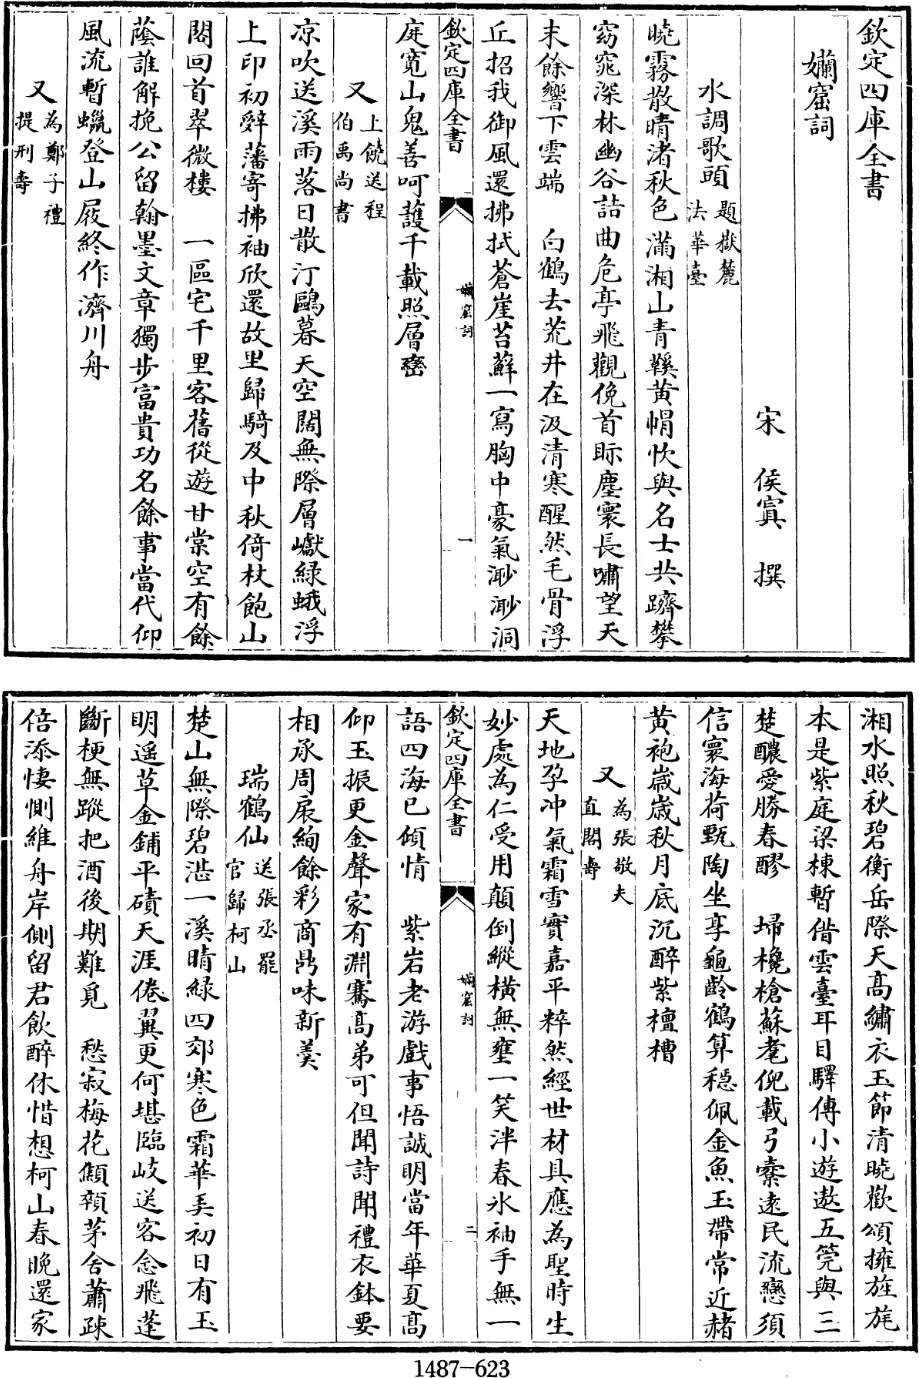 欽定四庫全書
嬾窟詞
宋 侯寘 撰
水調歌頭 題嶽麓法華臺
曉霧散晴渚秋色滿湘山青鞵黃帽忺與名士共躋攀
窈窕深林幽谷詰曲危亭飛觀俛首眎塵寰長嘯望天
末餘響下雲端 白鶴去荒井在汲清寒醒然毛骨浮
丘招我御風還拂拭蒼崖苔蘚一寫胸中豪氣渺渺洞
欽定四庫全書 嬾窟詞 一
庭寛山鬼善呵䕶千載照層巒
又 上饒送程伯禹尚書
凉吹送溪雨落日散汀鷗暮天空闊無際層巘綠蛾浮
上印初辤藩寄拂袖欣還故里歸騎及中秋倚杖飽山
閣回首翠微樓 一區宅千里客舊從遊甘棠空有餘
蔭誰解挽公留翰墨文章獨步富貴功名餘事當代仰
風流暫蠟登山屐終作濟川舟
又 為鄭子禮提刑壽
湘水照秋碧衡岳際天髙繡衣玉節清曉歡頌擁旌旄
本是紫庭梁棟暫借雲臺耳目驛傳小遊遨五筦與三
楚醲愛勝春醪 埽欃槍蘇耄倪載弓櫜逺民流戀須
信寰海荷甄陶坐享龜齡鶴算穩佩金魚玉帶常近赭
黃袍嵗嵗秋月底沉醉紫檀槽
又 為張敬夫直閣壽
天地孕冲氣霜雪實嘉平粹然經世材具應為聖時生
妙處為仁受用顛倒縱横無壅一笑泮春氷袖手無一
欽定四庫全書 嬾窟詞 二
語四海已傾情 紫岩老游戲事悟誠明當年華夏髙
仰玉振更金聲家有淵騫髙弟可但聞詩聞禮衣鉢要
相承周扆絢餘彩商鼎味新羹
瑞鶴仙 送張丞罷官歸柯山
楚山無際碧湛一溪晴綠四郊寒色霜華弄初日有玉
明遥草金鋪平磧天涯倦翼更何堪臨岐送客念飛蓬
斷梗無蹤把酒後期難覓 愁寂梅花顦顇茅舍蕭疎
倍添悽惻維舟岸側留君飲醉休惜想柯山春晚還家
1487-623